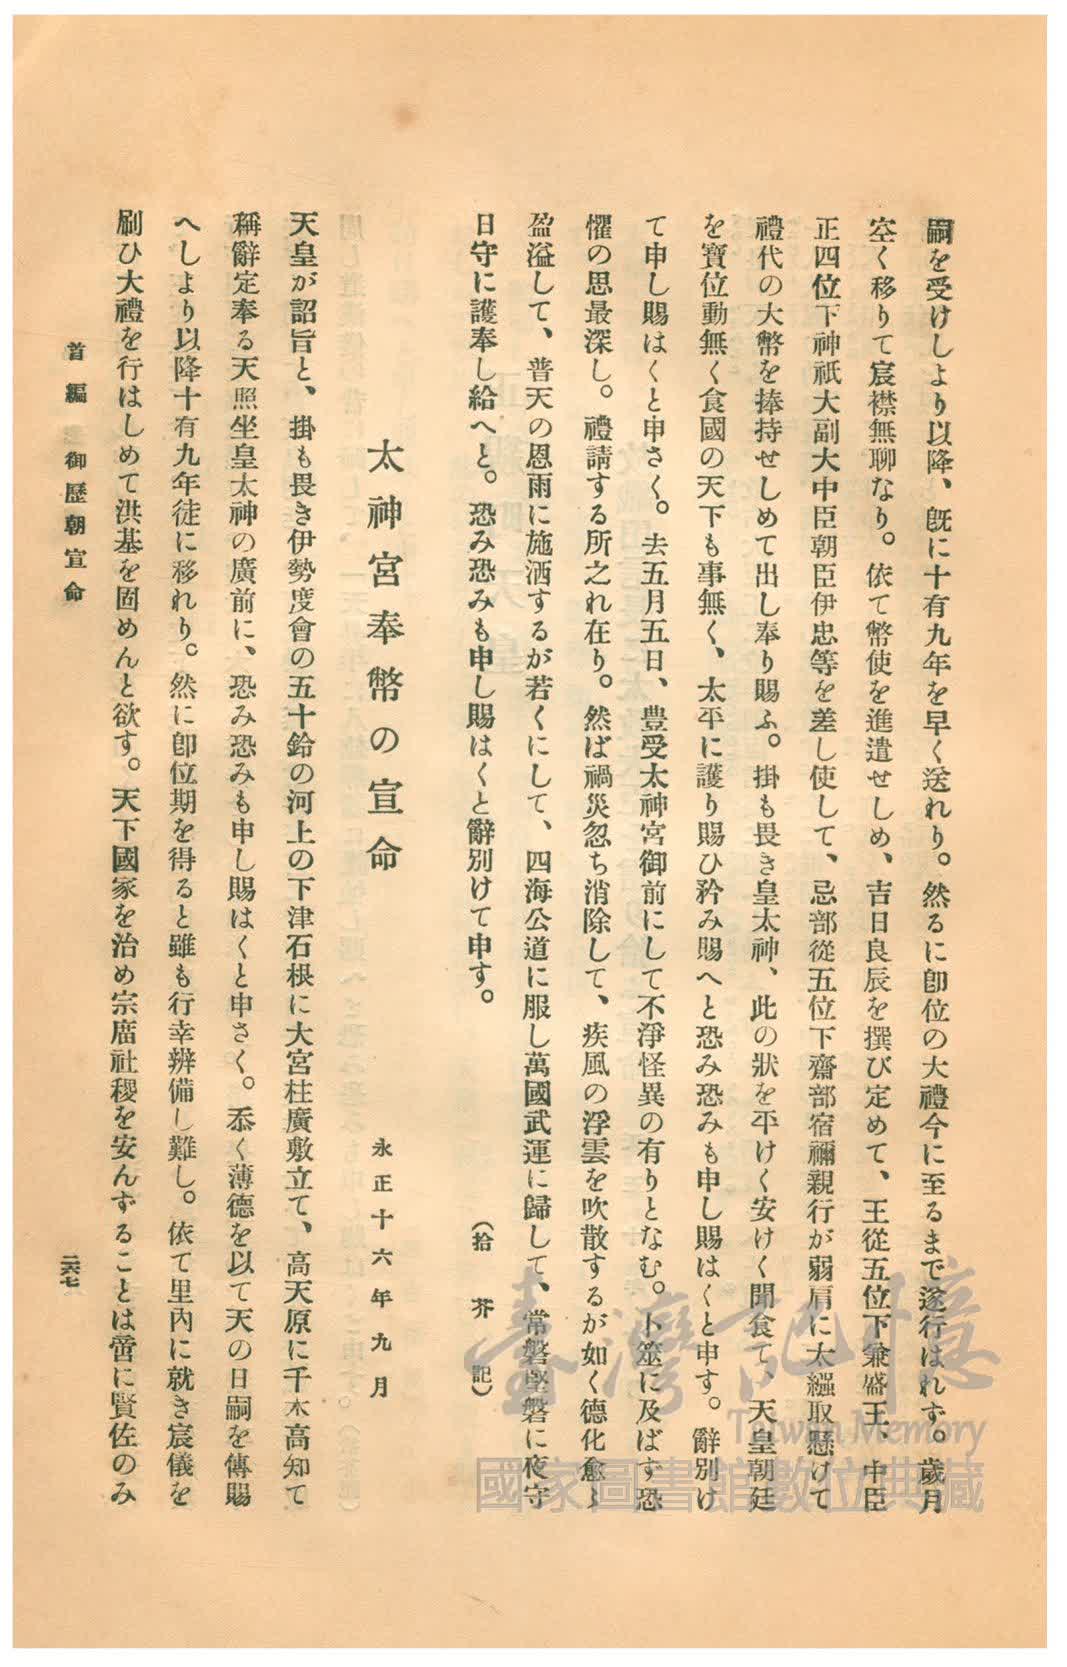 嗣を受けしより以降、既に十有九年を早く送れり。然るに卽位の大禮今に至るまで遂行はれず。歲月
空く移りて宸襟無聊なり。依て幣使を進遣せしめ、吉日良辰を撰び定めて、王從五位下兼盛王、中臣
正四位下神祇大副大中臣朝臣伊忠等を差し使して、忌部從五位下齋部宿禰親行が弱肩に太繦取懸けて
禮代の大幣を捧持せしめて出し奉り賜ふ。掛も畏き皇太神、此の狀を平けく安けく聞食て、天皇朝廷
を寶位動無く食國の天下も事無く、太平に護り賜ひ矜み賜へと恐み恐みも申し賜はくと申す。辭別け
て申し賜はくと申さく。去五月五日、豊受太神宮御前にして不淨怪異の有りとなむ。卜筮に及ばず恐
懼の思最深し。禮請する所之れ在り。然ば禍災忽ち消除して、疾風の浮雲を吹散するが如く德化愈〻
盈溢して、普天の恩雨に施洒するが若くにして、四海公道に服し萬國武運に歸して、常磐堅磐に夜守
日守に護奉し給へと。恐み恐みも申し賜はくと辭別けて申す。
(拾芥記)
太神宮奉幣の宣命
永正十六年九月
天皇が詔旨と、掛も畏き伊勢度會の五十鈴の河上の下津石根に大宮柱廣敷立て、高天原に千木高知て
稱辭定奉る天照坐皇太神の廣前に、恐み恐みも申し賜はくと申さく。忝く薄德を以て天の日嗣を傳賜
へしより以降十有九年徒に移れり。然に卽位期を得ると雖も行幸辨備し難し。依て里內に就き宸儀を
刷ひ大禮を行はしめて洪基を固めんと欲す。天下國家を治め宗廣社稷を安んずることは啻に賢佐のみ
首編 御歷朝宣命
二六七
臺灣記憶
Taiwan Memory
國家圖書館數位典藏